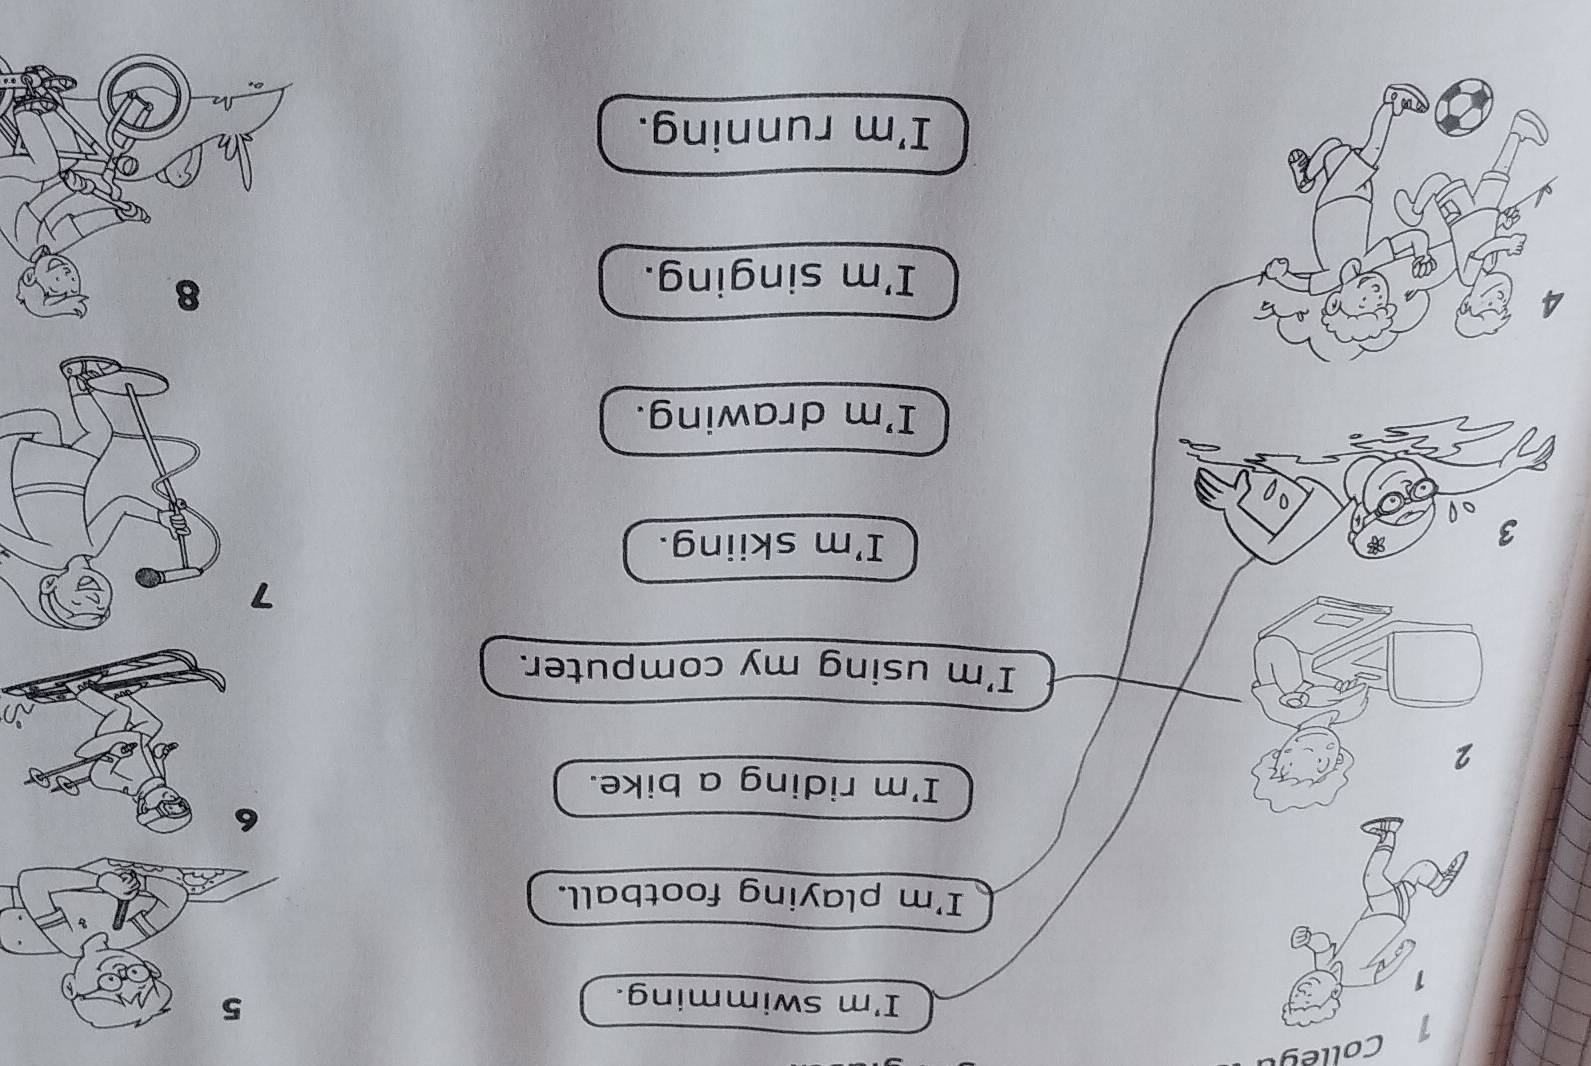 1
1
I'm swimming.
5
I'm playing football.
2
I'm riding a bike.
6
I'm using my computer.
3
I'm skiing.
7
I'm drawing.
4
I'm singing.
8
I'm running.